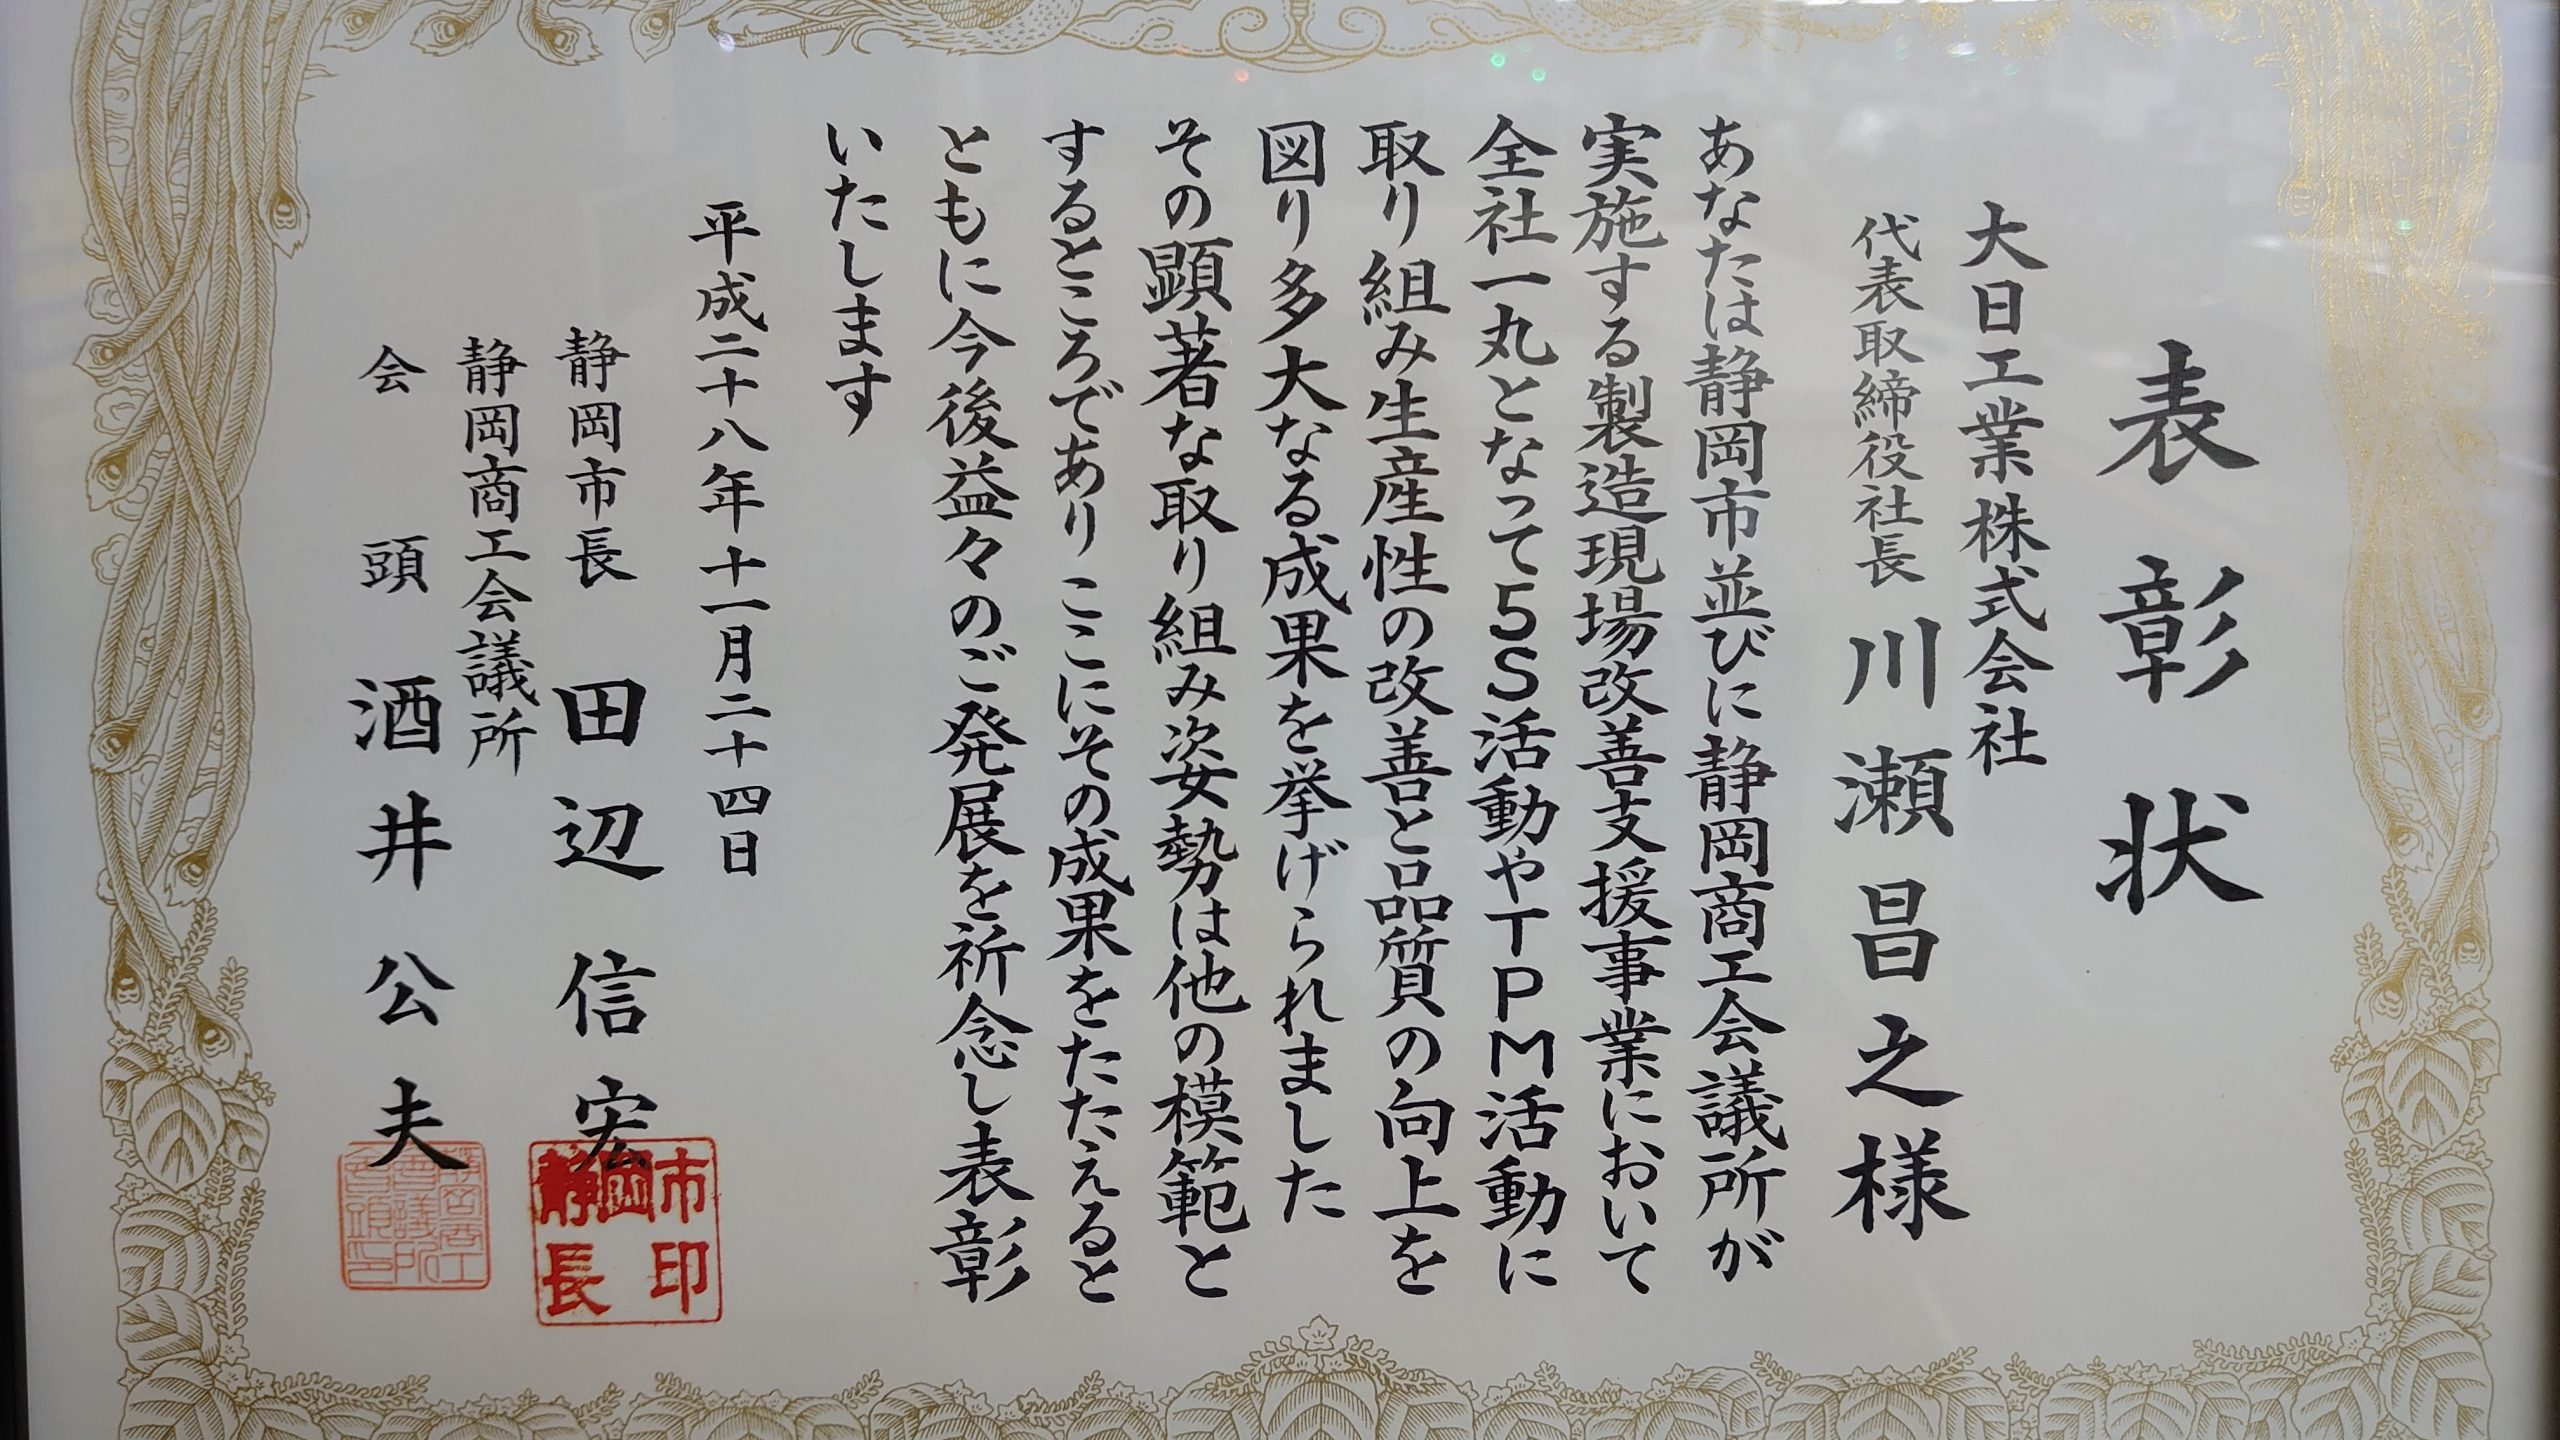 表彰状
大日工業株式会社
代表取締役社長 川瀬昌之様
あなたは静岡市並びに静岡商工会議所が
実施する製造現場改善支援事業において
全社一丸となって5S活動やTPM活動に
取り組み生産性の改善と品質の向上を
図り多大なる成果を挙げられました
その顕著な取り組み姿勢は他の模範と
するところであり ここにその成果をたたえると
ともに今後益々のご発展を祈念し表彰
いたします
平成二十八年十一月二十四日
静岡市長 田辺信宏
静岡商工会議所
会頭 酒井公夫
市印
静岡
長
静岡商工
会議所
会頭之印